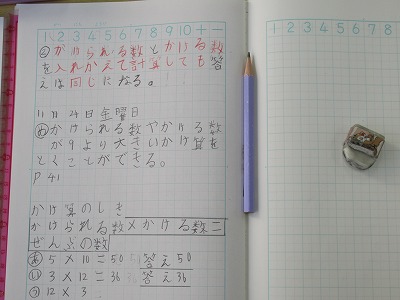 1 2 3 4 5 6 7 8 9 10 十 一
②かけられる数とかける数
を入れかえて計算しても答
えは同じになる。
11月24日金曜日
めかけられる数やかける数
が9より大きいかけ算を
とくことができる。
P41
かけ算のしき
かけられる数×かける数=
ぜんぶの数
あ 5×10=50 答え50
い 3×12=36 答え36
う 12×3
1 2 3 4 5 6 7 8